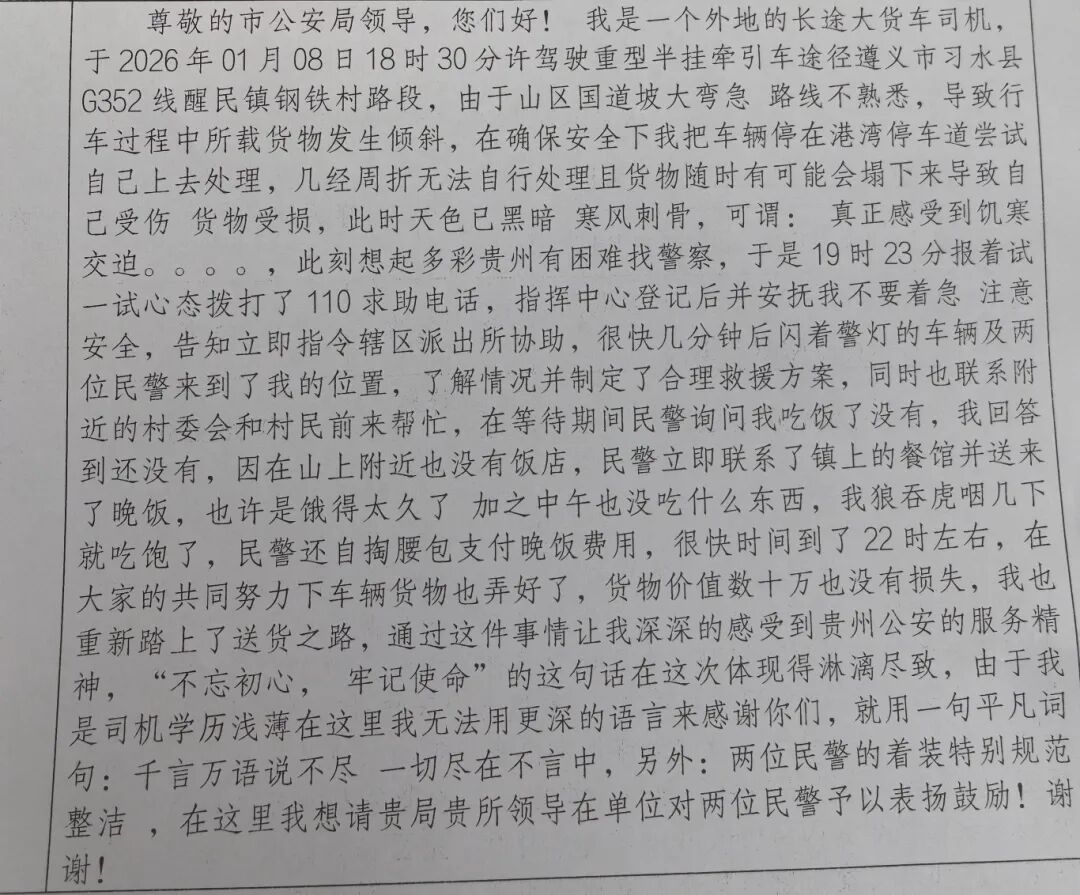 尊敬的市公安局领导，您们好！ 我是一个外地的长途大货车司机，
于2026年01月08日18时30分许驾驶重型半挂牵引车途径遵义市习水县
G352线醒民镇钢铁村路段，由于山区国道坡大弯急 路线不熟悉，导致行
车过程中所载货物发生倾斜，在确保安全下我把车辆停在港湾停车道尝试
自己上去处理，几经周折无法自行处理且货物随时有可能会塌下来导致自
己受伤 货物受损，此时天色已黑暗 寒风刺骨，可谓： 真正感受到饥寒
交迫。。。。，此刻想起多彩贵州有困难找警察，于是19时23分报着试
一试心态拨打了110求助电话，指挥中心登记后并安抚我不要着急 注意
安全，告知立即指令辖区派出所协助，很快几分钟后闪着警灯的车辆及两
位民警来到了我的位置，了解情况并制定了合理救援方案，同时也联系附
近的村委会和村民前来帮忙，在等待期间民警询问我吃饭了没有，我回答
到还没有，因在山上附近也没有饭店，民警立即联系了镇上的餐馆并送来
了晚饭，也许是饿得太久了 加之中午也没吃什么东西，我狼吞虎咽几下
就吃饱了，民警还自掏腰包支付晚饭费用，很快时间到了22时左右，在
大家的共同努力下车辆货物也弄好了，货物价值数十万也没有损失，我也
重新踏上了送货之路，通过这件事情让我深深的感受到贵州公安的服务精
神，“不忘初心， 牢记使命”的这句话在这次体现得淋漓尽致，由于我
是司机学历浅薄在这里我无法用更深的语言来感谢你们，就用一句平凡词
句：千言万语说不尽 一切尽在不言中，另外：两位民警的着装特别规范
整洁 ，在这里我想请贵局贵所领导在单位对两位民警予以表扬鼓励！谢
谢！